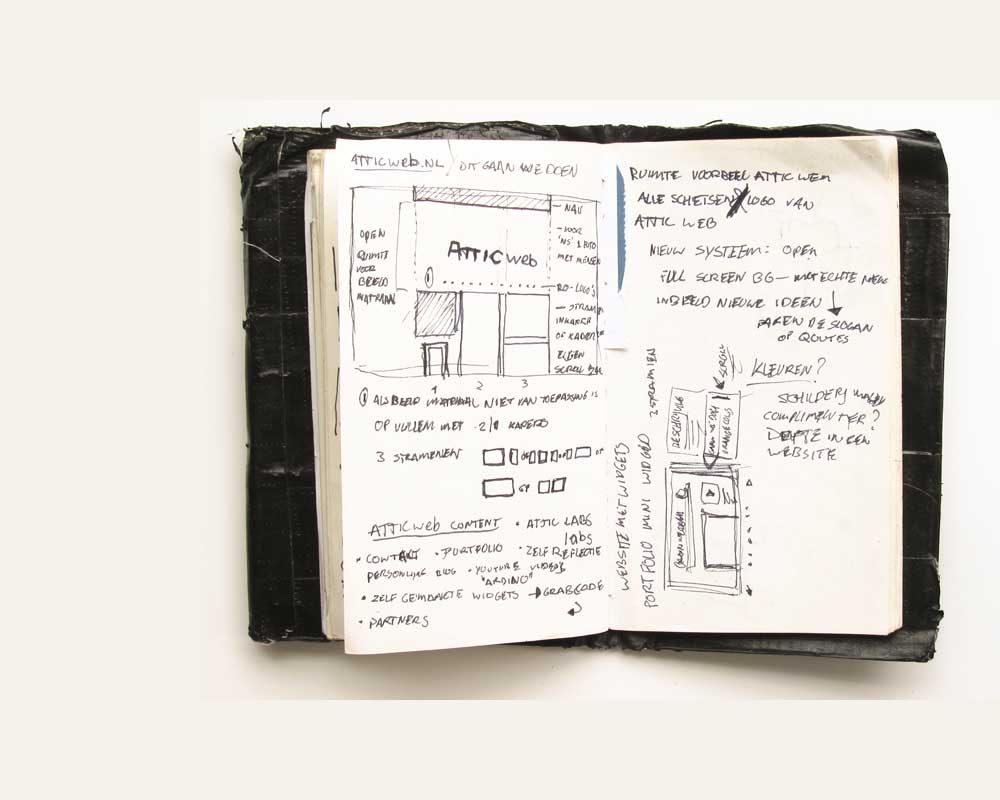 ATTICWEB.NL / DIT GAAN WE DOEN
NAV
VOOR
'NS' 1 FOTO
MET MENSEN
OPEN
RUIMTE
VOOR
BEELD
MATRIAAL
ATTICWEB
1
RO-LOGO'S
OF KADER
EIGEN
SCROLL
1 2 3
1 ALS BEELD MATRIAAL NIET VAN TOEPASSING IS
OP VULLEN MET 2/1 KADERS
3 STRAMIENEN
OF
OF
ATTICWEB CONTENT
• ATTIC LABS
labs
• CONTACT • PORTFOLIO • ZELF REFLECTIE
PERSONLIJKE BLOG • YOUTUBE VIDEO'S
"ARDINO"
• ZELF GEMAAKTE WIDGETS → GRABCODE
• PARTNERS
RUIMTE VOORBEELD ATTIC WEB
ALLE SCHETSEN LOGO VAN
ATTIC WEB
NIEUW SYSTEEM: OPEN
FULL SCREEN BG — MET ECHTE
INBEELD NIEUWE IDEEN
DAREN DE SLOGAN
OF QOUTES
KLEUREN?
SCHILDERIJ
COMPLIMENTER?
DIEPTE IN EEN
WEBSITE
WEBSITE MET WIDGETS
PORTFOLIO MINI WIDGED
2 STRAMIEN
SCROLL